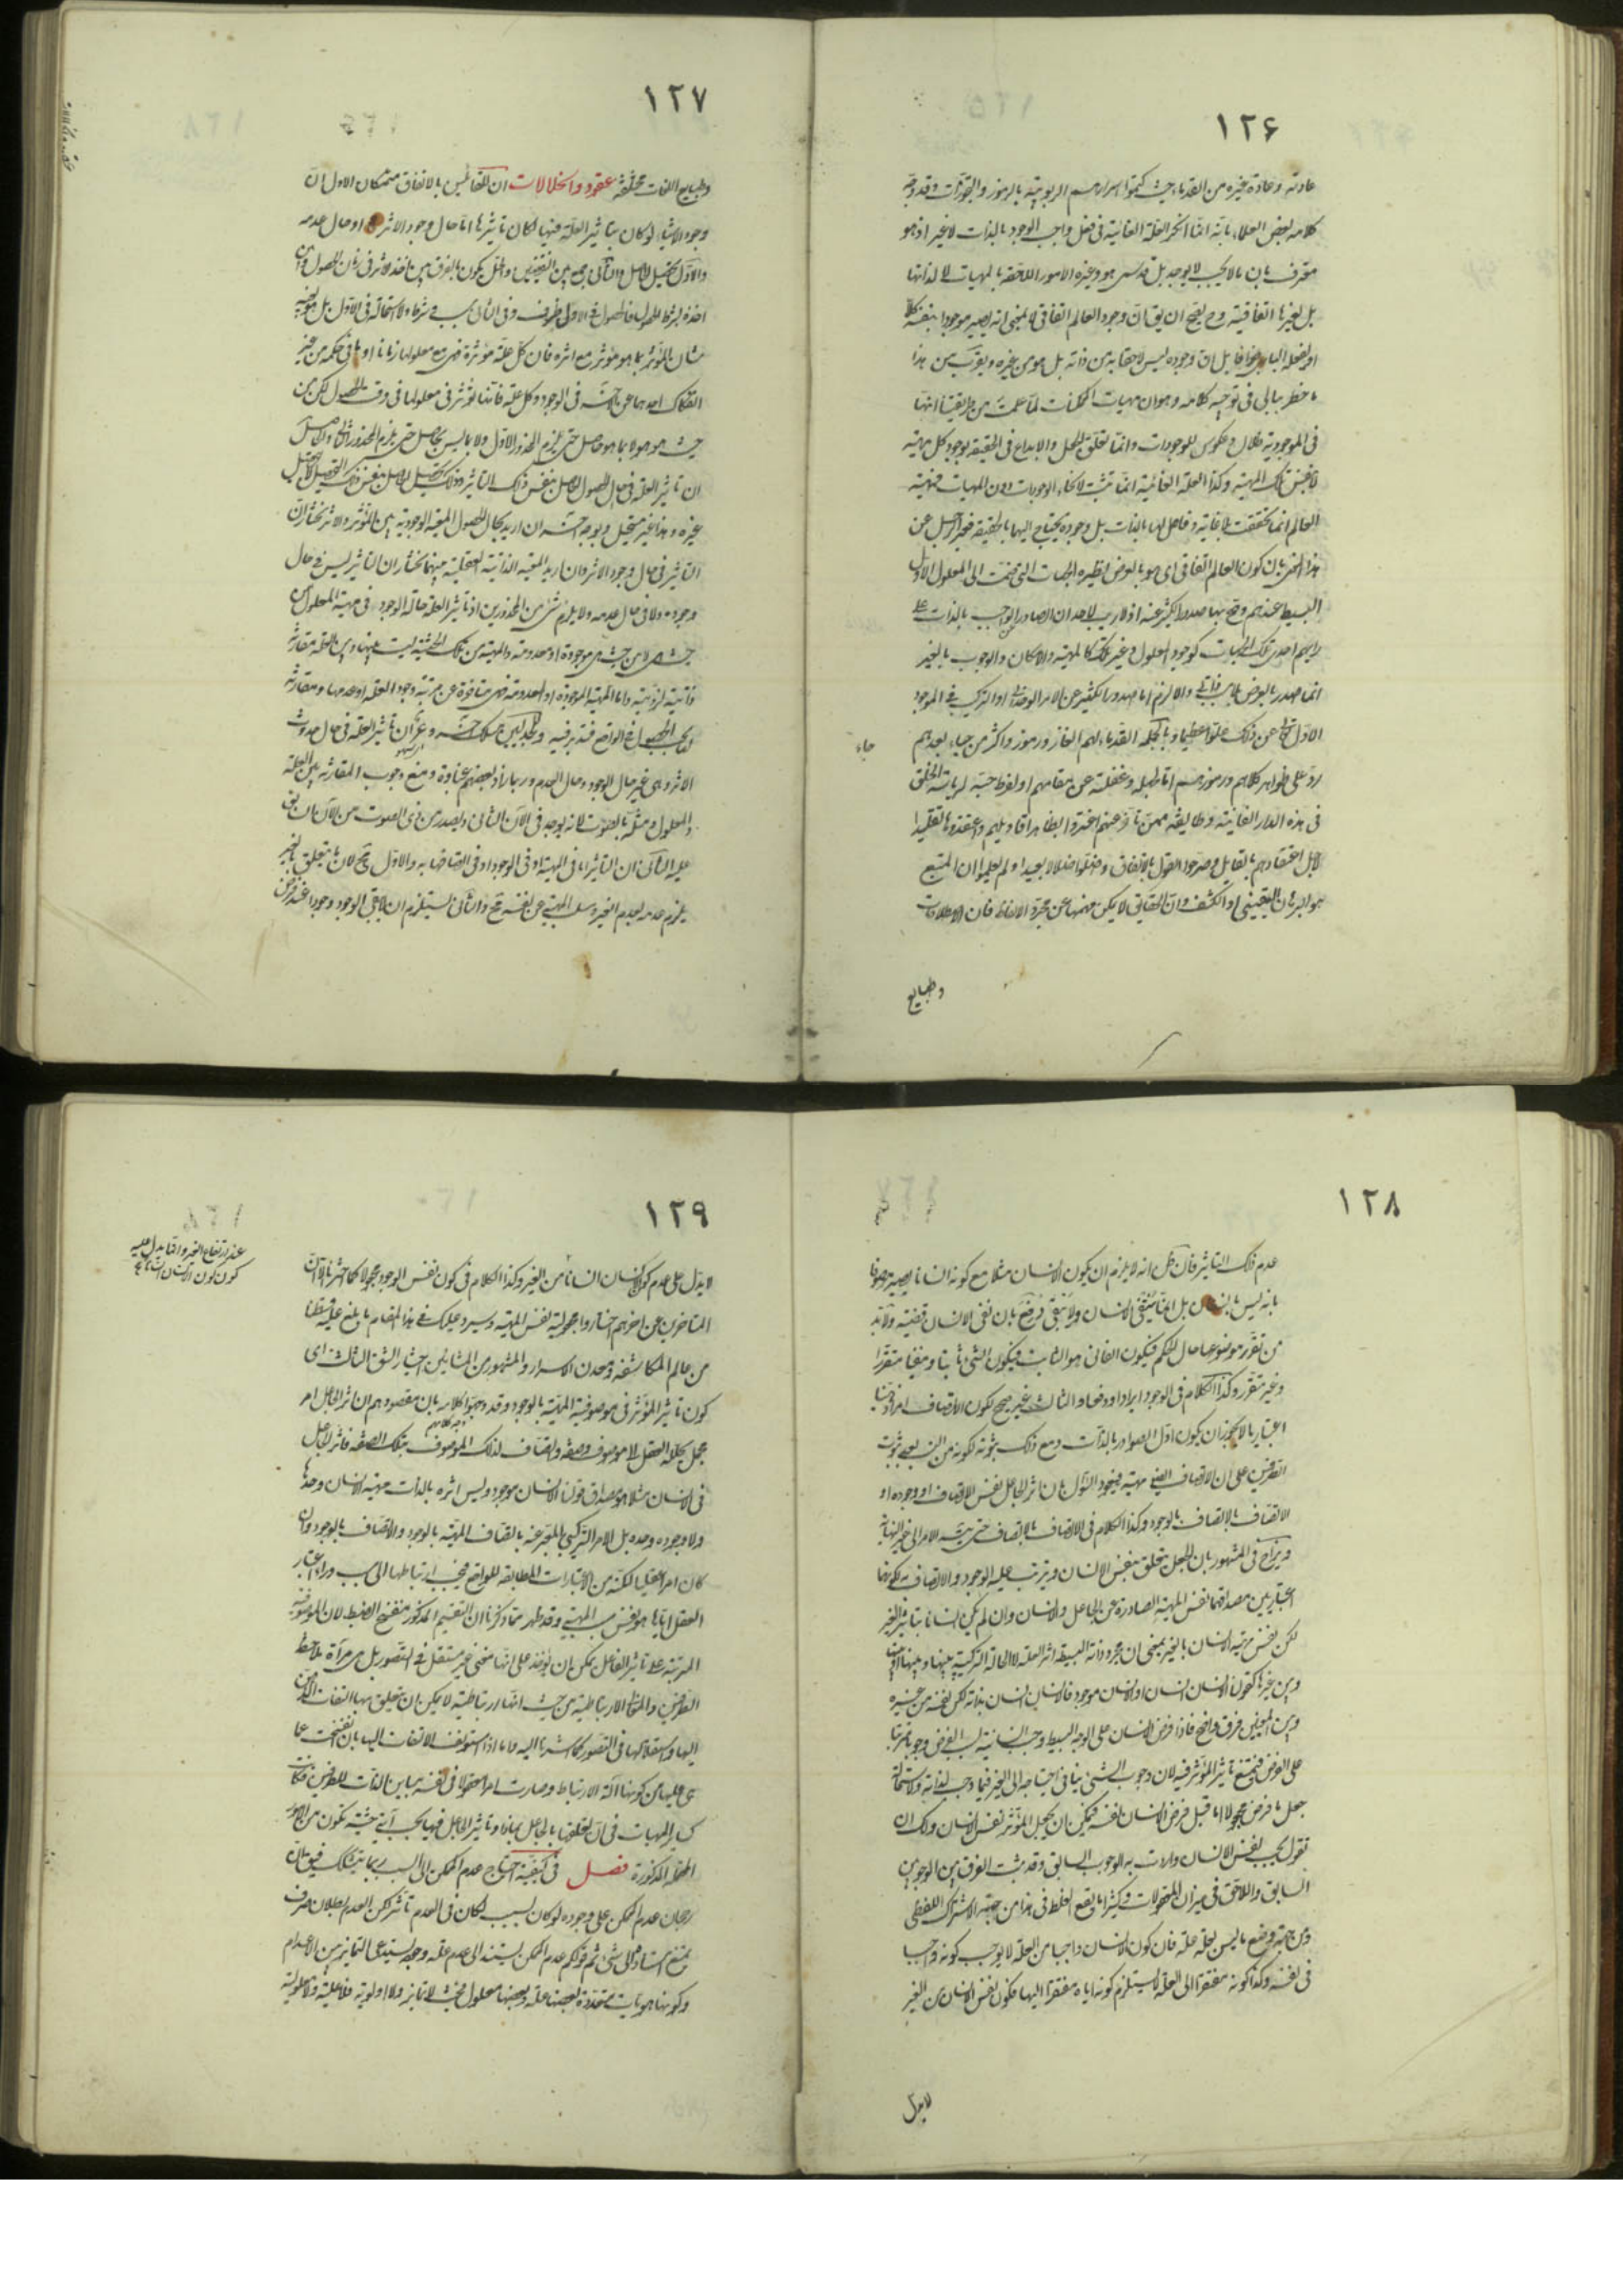 ١٢۶
عادته وعادة غيره من القدماء حيث كتموا اسرارهم الربوبية بالرموز والتجوزات وقد وجّه
كلامه بعض العلماء بانه انما انكر العلة الغائية فى فعل واجب الوجود بالذات لا غير اذ هو
معترف بان ما لا يجب لا يوجد بل قد سمى هو وغيره الامور اللاحقة بالمهيات لا لذاتها
بل لغيرها اتفاقية وح يصح ان يق ان وجود العالم اتفاقى لا بمعنى انه يصير موجودا بنفسه كلا
او لفعله البارى جزافا بل ان وجوده ليس لاحقا به من ذاته بل هو من غيره ويقرب من هذا
ما خطر ببالى فى توجيه كلامه وهو ان مهيات الممكنات لما علمت من طريقتنا انها
فى الموجودية ظلال وعكوس للوجودات وانما تعلق الجعل والابداع فى الحقيقة بوجود كل مهية
لا بنفس تلك المهية وكذا العلة الغائية انما تثبت لانحاء الوجودات دون المهيات فمهية
العالم انما تحققت بلا غاية وفاعل لها بالذات بل وجوده يحتاج اليها بالحقيقة فعبر الرجل عن
هذا المعنى بان كون العالم اتفاقى اى هو بالعرض نظيره الجهات التى ضمّت الى المعلول الاول
البسيط عندهم وصح بها صدور الكثير عنه اذ لا ريب لاحد ان الصادر من الواجب بالذات على
رايهم احدى تلك الحيثيات كوجود المعلول وغير تلك كالمهية والامكان والوجوب بالغير
انما صدر بالعرض بلا سبب ذاتى والا لزم اما صدور الكثير عن الامر الوحدانى او التركيب فى الموجود
الاول تعالى عن ذلك علوا عظيما وبالجملة القدماء لهم الغاز ورموز واكثر من جاء بعدهم
جاء
ردّ على ظواهر كلامهم ورموزهم اما لجهله وغفلته عن مقامهم او لفرط حبه لرياسة الخلق
فى هذه الدار الفانية وطائفة ممن تاخر عنهم اغتروا بظاهر اقاويلهم واعتقدوها تقليدا
لاجل اعتقادهم بالقايل وصرحوا القول بالاتفاق وضلوا ضلالا بعيدا ولم يعلموا ان المتبع
هو البرهان اليقينى او الكشف وان الحقايق لا يمكن فهمها عن مجرد الالفاظ فان الاصطلاحات
وطبايع
١٢٧
وطبايع اللغات مختلفة عقود وانحلالات ان للقائلين بالاتفاق متمسكات الاول ان
وجود الاشياء لو كان بتاثير العلة فيها لكان تاثيرها اما حال وجود الاثر او حال عدمه
والاول تحصيل الحاصل والثانى جمع بين النقيضين والحل يكون بالفرق بين اخذ الاثر فى زمان الحصول وبين
اخذه بشرط الحصول فالحصول فى الاول ظرف وفى الثانى سبب وشرط ولا استحالة فى الاول بل هو بعينه
شان المؤثر بما هو مؤثر مع اثره فان كل علة مؤثرة فهى مع معلولها زمانا او ما فى حكمه من غير
انفكاك احدهما عن صاحبه فى الوجود وكل علة فانما تؤثر فى معلولها فى وقت الحصول لكن من
حيث هو هو لا بما هو حاصل حتى يلزم المحذور الاول ولا بما ليس بحاصل حتى يلزم المحذور الثانى والحاصل
ان تاثير العلة فى حال حصول الحاصل بنفس ذلك التاثير وذلك تحصيل الحاصل بنفس ذلك التحصيل لا بتحصيل
غيره وهذا غير مستحيل وبوجه اخر ان اريد بحال الحصول المعية الوجودية بين المؤثر والاثر نختار ان
التاثير فى حال وجود الاثر وان اريد المعية الذاتية العقلية بينهما نختار ان التاثير ليس فى حال
وجوده ولا فى حال عدمه ولا يلزم شئ من المحذورين اذ تاثير العلة حالة الوجود فى مهية المعلول من
حيث هى لا من حيث هى موجودة او معدومة والمهية من تلك الحيثية ليست بينها وبين العلة مقارنة
ذاتية لزومية واما المهية الموجودة او المعدومة فهى متاخرة عن مرتبة وجود العلة او عدمها ومقارنة
لها بحسب الحصول فى الواقع فتدبر فيه وللجدليين مسلك اخر وعر ان تاثير العلة فى حال حدوث
الاثر وهى غير حال الوجود وحال العدم وربما زاد بعضهم غباوة ومنع وجوب المقارنة بين العلة
والمعلول ومثله بالصوت لانه يوجد فى الآن الثانى ويصدر من ذى الصوت من الآن السابق
عليه الثانى ان التاثير اما فى المهية او فى الوجود او فى اتصافها به والاول مح لان ما يتعلق بالغير
يلزم عدمه لعدم الغير وسلب المهية عن نفسه مح والثانى يستلزم ان لا يبقى الوجود وجودا عند فرض
١٢٨
عدم ذلك التاثير فان قيل انه لا يلزم ان يكون الانسان مثلا مع كونه انسانا يصير موصوفا
بانه ليس بانسان بل انما ينتفى الانسان ولا يبقى فرفع بان نفى الانسان قضية ولا بد
من تقرر موضوعها حال الحكم فيكون الفانى هو الثابت فيكون الشئ ثابتا ومنفيا متقررا
وغير متقرر وكذا الكلام فى الوجود ايرادا ودفعا والثالث غير صحيح لكون الاتصاف امرا ذهنيا
اعتباريا لا يجوز ان يكون اول الصوادر بالذات ومع ذلك ثبوته لكونه من النسب بعد ثبوت
الطرفين على ان الاتصاف ايضا مهية فيعود السؤال بان اثر الجاعل نفس الاتصاف او وجوده او
الاتصاف بالاتصاف بالوجود وكذا الكلام فى الاتصاف بالاتصاف حتى يتسلسل الامر الى غير النهاية
ويزاح فى المشهور بان الجعل يتعلق بنفس الانسان ويترتب عليه الوجود والاتصاف به لكونهما
اعتباريين مصداقهما نفس المهية الصادرة عن الجاعل والانسان وان لم يكن انسانا بتاثير الغير
لكن نفس مهية الانسان بالغير بمعنى ان مجرد ذاته البسيطة اثر العلة لا الحالة التركيبية بينها وبين ذاتها
وبين غيرها كقولنا الانسان انسان او الانسان موجود فالانسان انسان بذاته لكن نفسه من غيره
وبين المعنيين فرق واضح فاذا فرض الانسان على الوجه البسيط وجب انسانية بسبب الفرض وجوبا مترتبا
على الفرض فيمتنع تاثير المؤثر فيه لان وجوب الشئ ينافى احتياجه الى الغير فيما وجب لذاته ولاستحالة
جعل ما فرض مجعولا اما قبل فرض الانسان نفسه فيمكن ان يجعل المؤثر نفس الانسان ولك ان
تقول يجب نفس الانسان ولات به الوجوب السابق وقد ثبت الفرق بين الوجوبين
السابق واللاحق فى ميزان المعقولات وكثيرا ما يقع الغلط فى هذا من جهة الاشتراك اللفظى
ومن جهة وضع ما ليس بعلة علة فان كون الانسان واجبا من العلة لا يوجب كونه واجبا
فى نفسه وكذا كونه مفتقرا الى العلة لا يستلزم كونه اياه مفتقرا اليها فكون نفس الانسان من الغير
لا يدل
١٢٩
عند ارتفاع الغير وانما يدل عليه
كون كون الانسان انسانا
لا يدل على عدم كون الانسان انسانا من الغير وكذا الكلام فى كون نفس الوجود مجعولا كما اخترنا الا ان
المتاخرين عن اخرهم اختاروا مجعولية نفس المهية وسيرد عليك فى هذا المقام ما بلغ اليه قسطنا
من عالم المكاشفة ومعدن الاسرار والمشهور من المشائين اختيار الشق الثالث اى
كون تاثير المؤثر فى موصوفية المهية بالوجود وقد وجهوا كلامهم بان مقصودهم ان اثر الجاعل امر
مجمل يحلله العقل الى موصوف وصفة واتصاف لذلك الموصوف بتلك الصفة فاثر الجاعل
فى الانسان مثلا هو مصداق قولنا الانسان موجود وليس اثره بالذات مهية الانسان وحدها
ولا وجوده وحده بل الامر التركيبى المعبر عنه باتصاف المهية بالوجود والاتصاف بالوجود وان
كان امرا عقليا لكنه من الاعتبارات المطابقة للواقع فيجب ارتباطها الى سبب وراء اعتبار
العقل اياها هو نفس سبب المهية وقد ظهر مما ذكرنا ان التقسيم المذكور منفسخ الضبط لان الموصوفية
المترتبة على تاثير الفاعل يمكن ان يؤخذ على انها معنى غير مستقل فى التصور بل هى مرآة ملاحظة
الطرفين والمعنى الارتباطية من حيث انها ارتباطية لا يمكن ان يتعلق بها التفات الذهن
اليها واستقلالها فى التصور كما اشرنا اليه واما اذا استونف الالتفات اليها بان انفسخت عما
هى عليها من كونها آلة الارتباط وصارت امرا معقولا فى نفسه مباين الذات للطرفين فكانت
كساير المهيات فى ان تعلقها بالجاعل بماذا وتاثير الجاعل فيها بحسب اى حيثية تكون من الامور
المحتملة المذكورة فصل فى كيفية احتياج عدم الممكن الى السبب ربما يتشكك فيق ان
رجحان عدم الممكن على وجوده لو كان بسبب لكان فى العدم تاثير لكن العدم بطلان صرف
يمتنع استناده الى شئ ثم قولكم عدم الممكن يستند الى عدم علة وجوده يستدعى التمايز بين الاعدام
وكونها هويات متعددة بعضها علة وبعضها معلول فحيث لا تمايز ولا اولوية فلا علية ولا معلولية